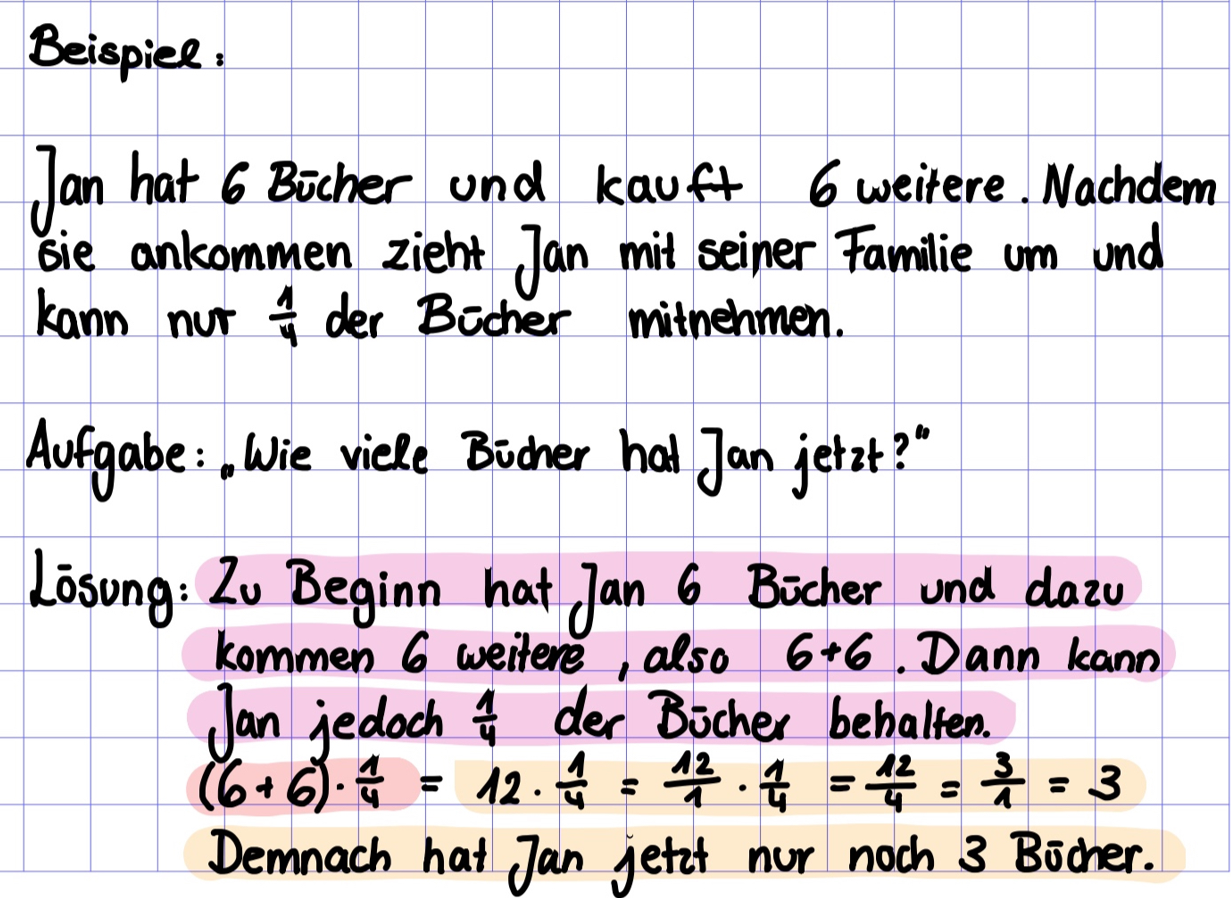 Beispiel:
Jan hat 6 Bücher und kauft 6 weitere. Nachdem
sie ankommen zieht Jan mit seiner Familie um und
kann nur 1/4 der Bücher mitnehmen.
Aufgabe: „Wie viele Bücher hat Jan jetzt?“
Lösung: Zu Beginn hat Jan 6 Bücher und dazu
kommen 6 weitere, also 6+6. Dann kann
Jan jedoch 1/4 der Bücher behalten.
(6+6)·1/4 = 12·1/4 = 12/1·1/4 = 12/4 = 3/1 = 3
Demnach hat Jan jetzt nur noch 3 Bücher.